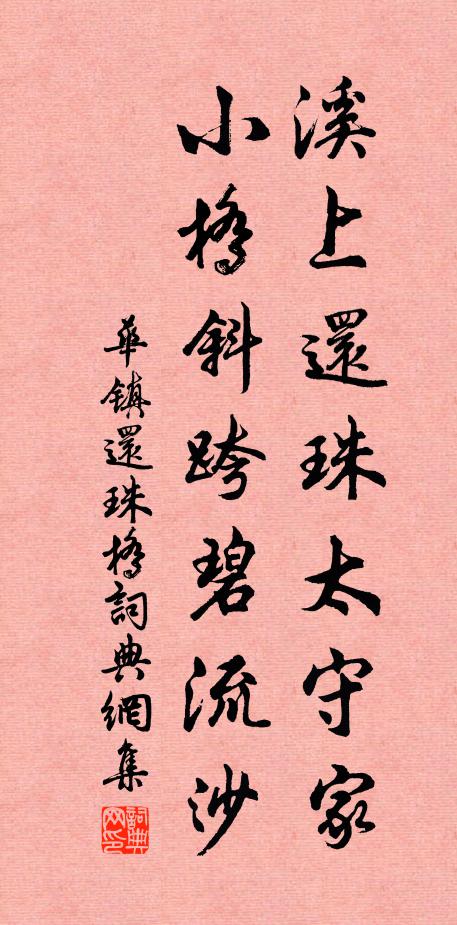 溪上還珠太守家
小橋斜跨碧流沙
華鎮還珠橋詞典網集
詞典网印